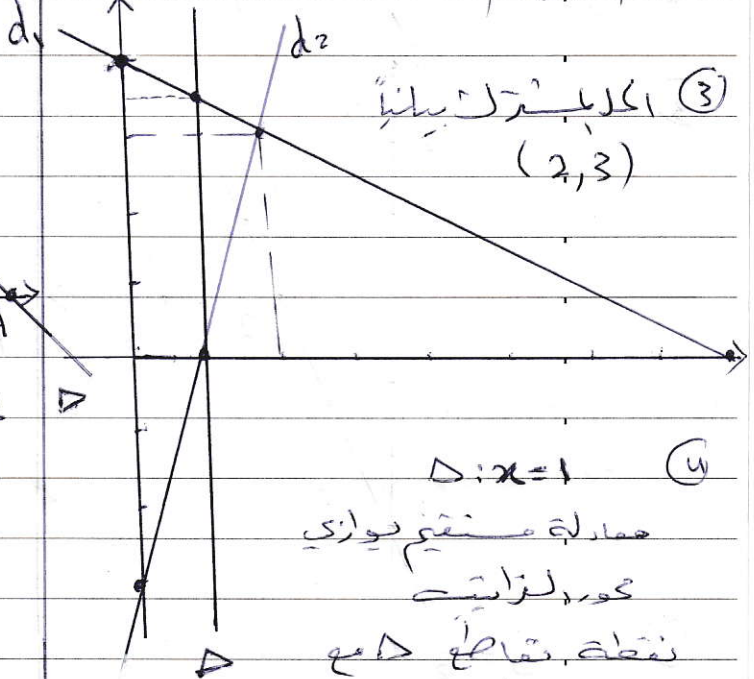 d₁
d₂
③ الحل المشترك بيانياً
(2,3)
Δ
④ Δ: x=1
معادلة مستقيم يوازي
محور التراتيب
نقطة تقاطع Δ مع
Δ